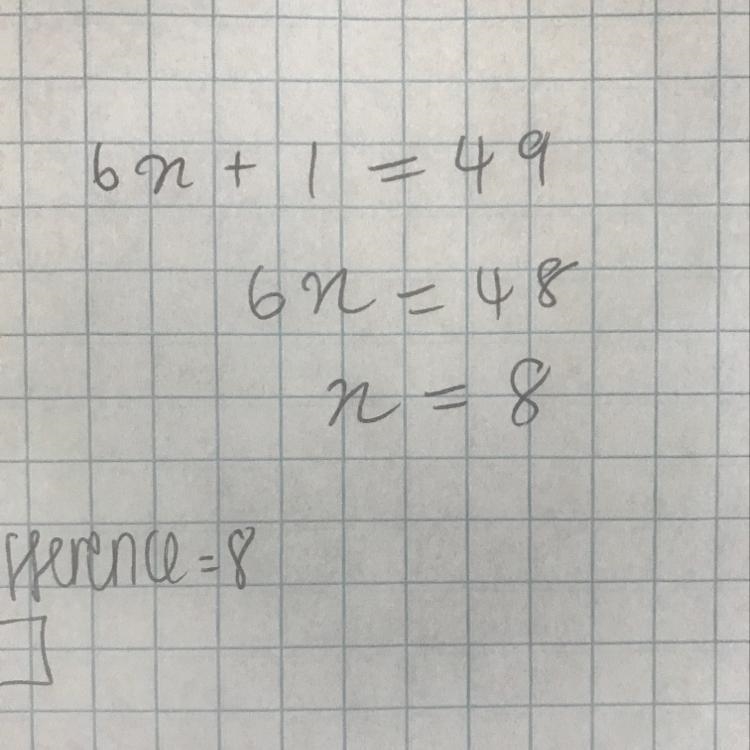 6n + 1 = 49
6n = 48
n = 8
fference = 8